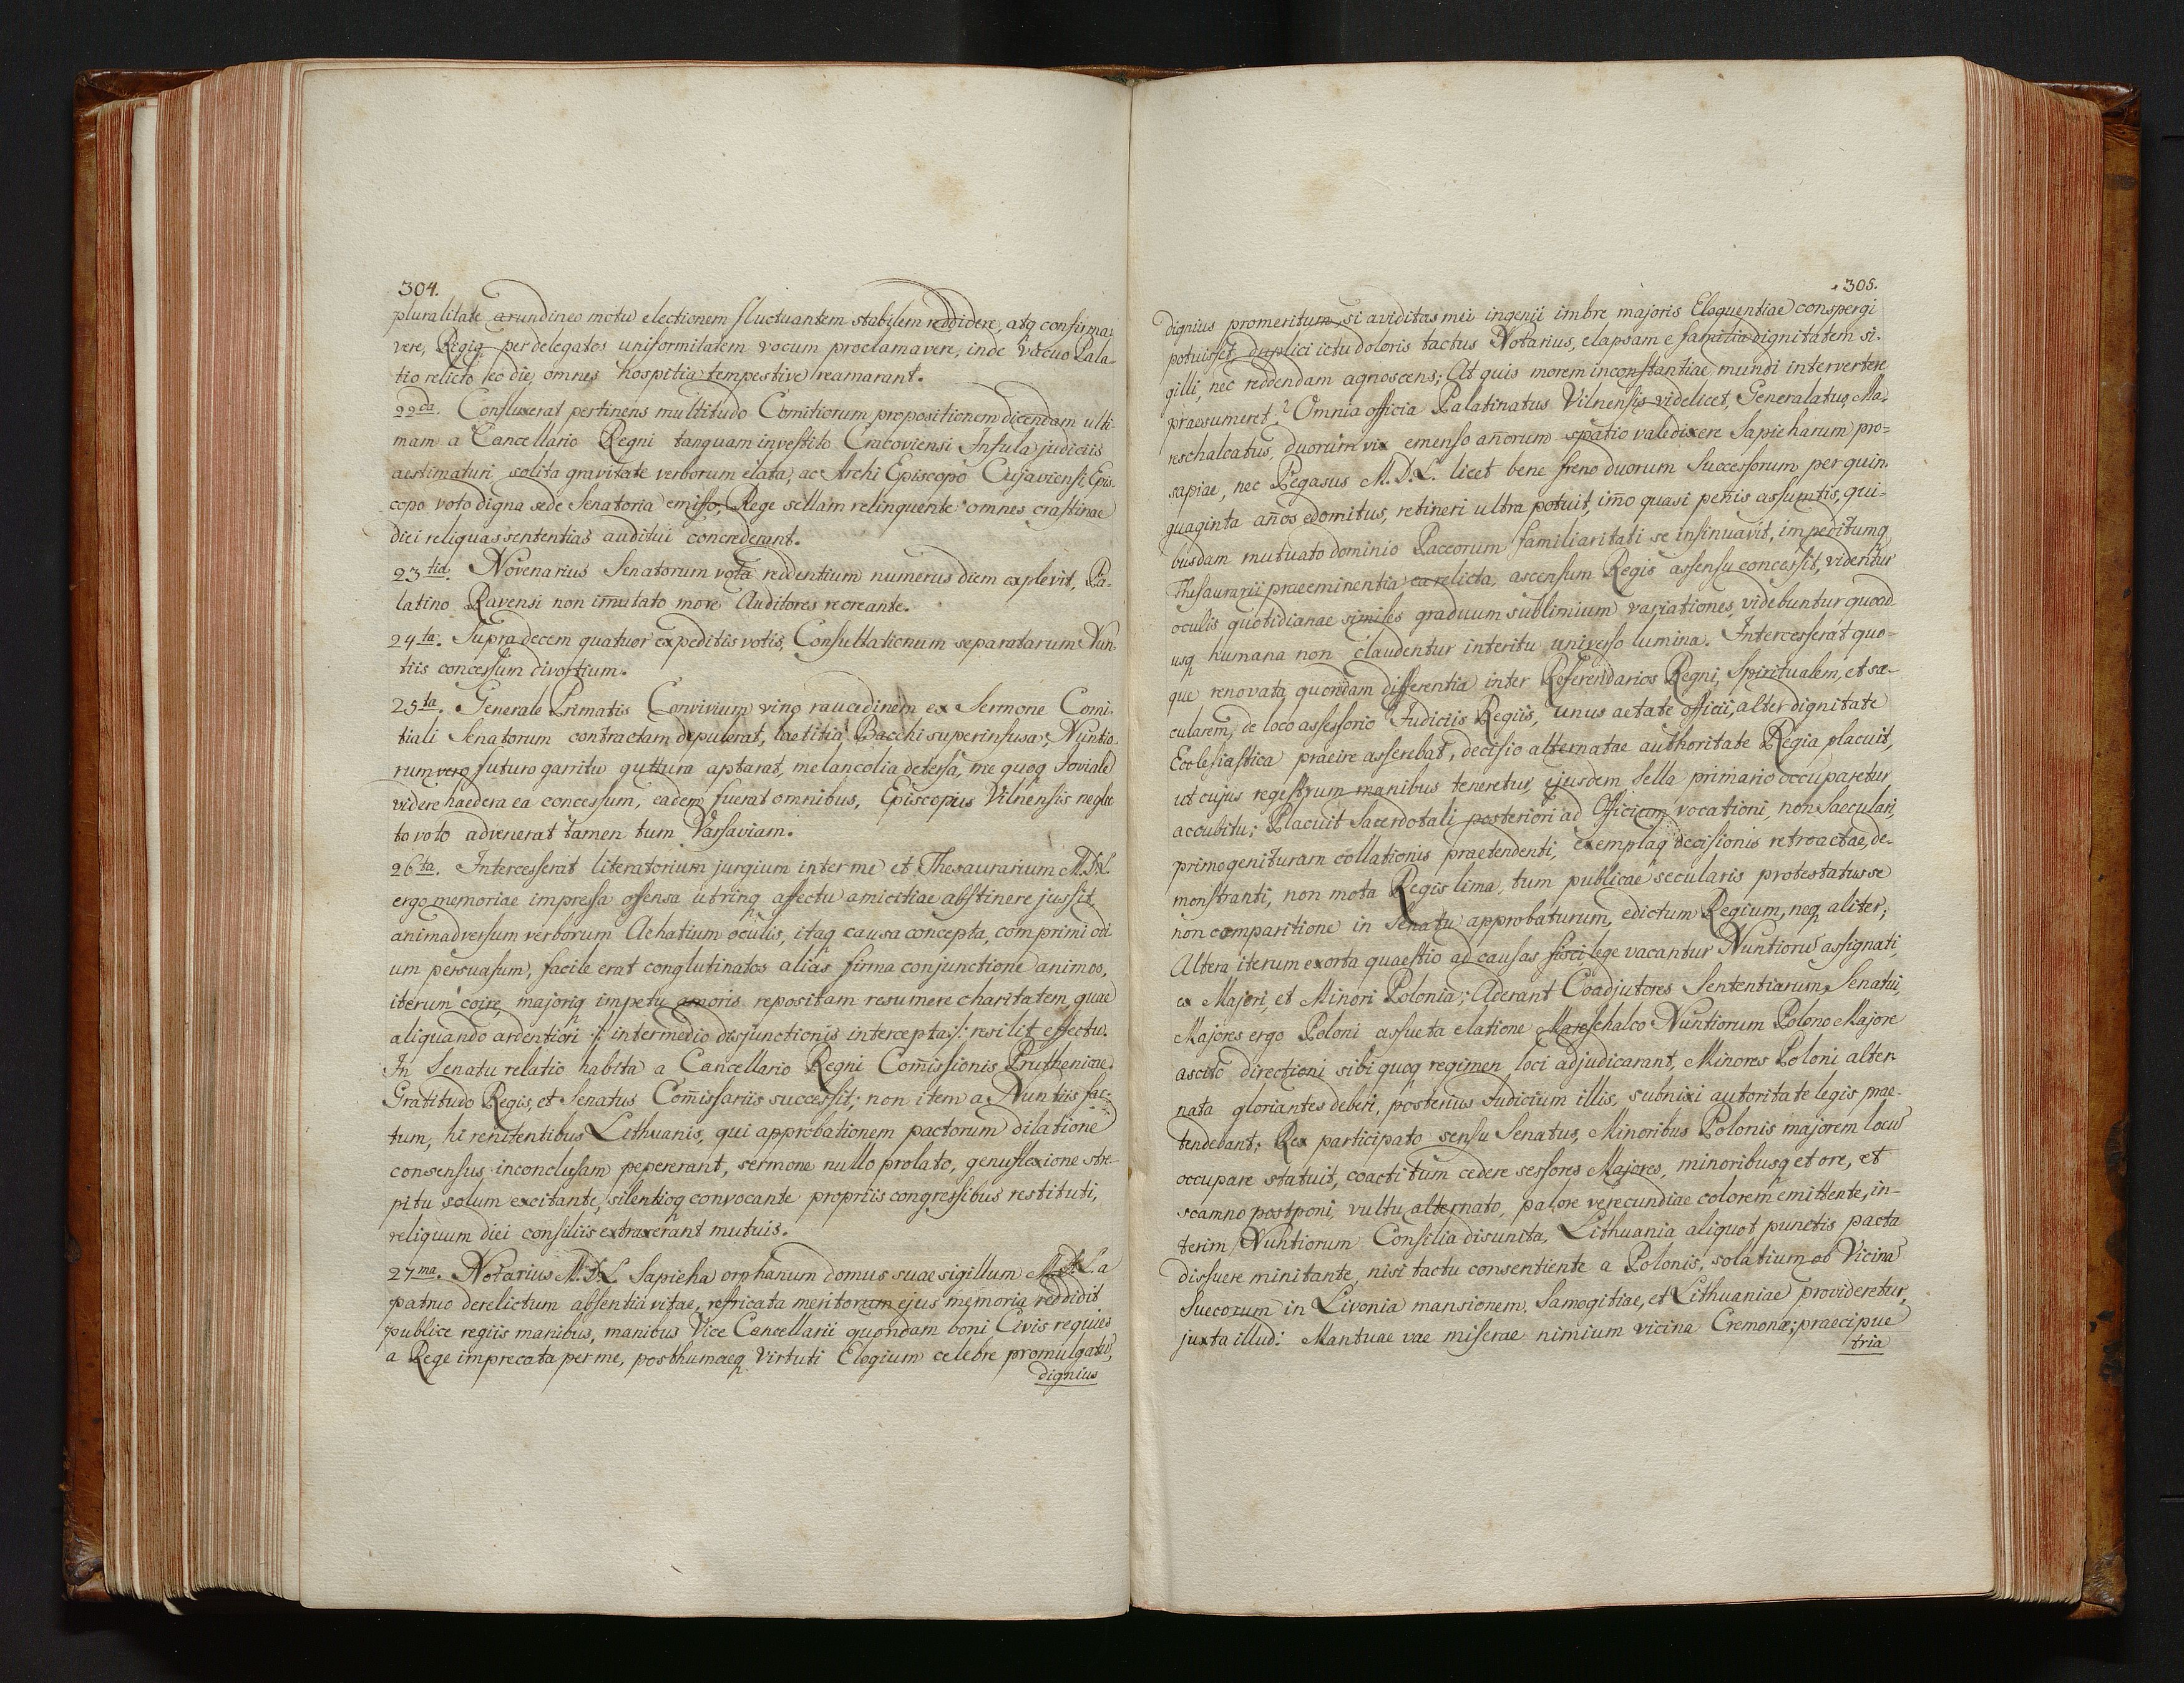 304.
pluralitate arundineo motu electionem fluctuantem stabilem reddidere, atq confirma-
vere, Regiq per delegatos uniformitatem vocum proclamavere, inde vacuo Pala-
tio relicto eo die, omnes hospitia tempestive reamarant.
22da. Confluxerat pertinens multitudo Comitiorum propositionem dicendam ulti-
mam a Cancellario Regni tanquam investito Cracoviensi Infula judiciis
aestimaturi, solita gravitate verborum elata, ac Archi Episcopo Cujaviensi Epis-
copo voto digna sede Senatoria emisso, Rege sellam relinquente omnes crastinae
diei reliquas sententias auditui concrederant.
23tia. Novenarius Senatorum vota reddentium numerus diem explevit, Pa-
latino Ravensi non im̄utato more Auditores recreante.
24ta. Supra decem quatuor expeditis votis, Consultationum separatarum Nun-
tiis concessum divortium.
25ta. Generale Primatis Convivium vino raucedinem ex Sermone Comi-
tiali Senatorum contractam depulerat, laetitia Bacchi superinfusa; Nuntio-
rum vero futuro garritu guttura aptarat, melancolia detersa, me quoq Joviale
videre haedera ea concessum, eadem fuerat omnibus, Episcopus Vilnensis neglec
to voto advenerat tamen tum Varsaviam.
26ta. Intercesserat literatorium jurgium inter me et Thesaurarium M.D.L.
ergo memoriae impressa offensa utrinq affectu amicitiae abstinere jussit,
animadversum verborum Achatium oculis, itaq causa concepta, comprimi odi-
um persuasum, facile erat conglutinatos alias firma conjunctione animos,
iterum coire, majoriq impetu amoris repositam resumere charitatem, quae
aliquando ardentiori /: intermedio disjunctionis intercepta :/ resilit effectu.
In Senatu relatio habita a Cancellario Regni Com̄issionis Pruthenicae.
Gratitudo Regis, et Senatus Com̄issariis successit; non item a Nuntiis fac-
tum, hi renitentibus Lithuanis, qui approbationem pactorum dilatione
consensus inconclusam pepererant, sermone nullo prolato, genuflexione stre-
pitu solum excitante, silentioq convocante propriis congressibus restituti,
reliquum diei consiliis extraxerant mutuis.
27ma. Notarius M.D.L. Sapieha orphanum domus suae sigillum M.D.L. a
patruo derelictum absentia vitae, refricata meritorum ejus memoria reddidit
publice regiis manibus, manibus Vice Cancellarii quondam boni Civis requies
a Rege imprecata per me, posthumaeq virtuti Elogium celebre promulgatū,
dignius
305.
dignius promeritum, si aviditas mei ingenii imbre majoris Eloquentiae conspergi
potuisset, duplici ictu doloris tactus Notarius, elapsam e familia dignitatem si-
gilli, nec reddendam agnoscens; At quis morem inconstantiae mundi intervertere
praesumeret? Omnia officia Palatinatus Vilnensis videlicet, Generalatus, Ma-
reschalcatus, duorum vix emenso an̄orum spatio valedixere Sapieharum pro-
sapiae, nec Pegasus M.D.L. licet bene freno duorum Successorum per quin-
quaginta an̄os edomitus, retineri ultra potuit, im̄o quasi pen̄is assumtis, qui-
busdam mutuato dominio Paceorum familiaritati se insinuavit, impeditumq
Thesaurarii praeeminentia ea relicta, ascensum Regis assensu concessit, videntur
oculis quotidianae similes graduum sublimium variationes, videbuntur quoad-
usq humana non claudentur interitu universo lumina. Intercesserat quo-
que renovata quondam differentia inter Referendarios Regni, Spiritualem, et sae-
cularem, de loco assessorio Judiciis Regiis, unus aetate officii, alter dignitate
Ecclesiastica praeire asserebat, decisio alternatae authoritate Regia placuit,
ut cujus regestrum manibus teneretur, ejusdem sella primario occuparetur
accubitu; Placuit Sacerdotali posteriori ad Officium vocationi, non Saeculari,
primogenituram collationis praetendenti, exemplaq decisionis retroactae, de-
monstranti, non mota Regis lima, tum publicae secularis protestatus se
non comparitione in Senatu approbaturum, edictum Regium, neq aliter;
Altera iterum exorta quaestio ad causas fisci lege vacantur Nuntiorū assignati,
ex Majori, et Minori Polonia; Aderant Coadjutores Sententiarum Senatui,
Majores ergo Poloni assueta elatione Mareschalco Nuntiorum Polono Majore
ascito directioni sibi quoq regimen loci adjudicarant, Minores Poloni alter-
nata gloriantes deberi, posterius Judicium illis, subnixi autoritate legis prae-
tendebant; Rex participato sensu Senatus, Minoribus Polonis majorem locū
occupare statuit, coacti tum cedere sessores Majores, minoribusq et ore, et
scamno postponi, vultu alternato, palore verecundiae colorem emittente, in-
terim Nuntiorum Consilia disunita, Lithuania aliquot punctis pacta
dissuere minitante, nisi tactu consentiente a Polonis, solatium ob Vicinā
Suecorum in Livonia mansionem, Samogitiae, et Lithuaniae provideretur,
juxta illud: Mantuae vae miserae nimium vicina Cremonae; praecipue
tria